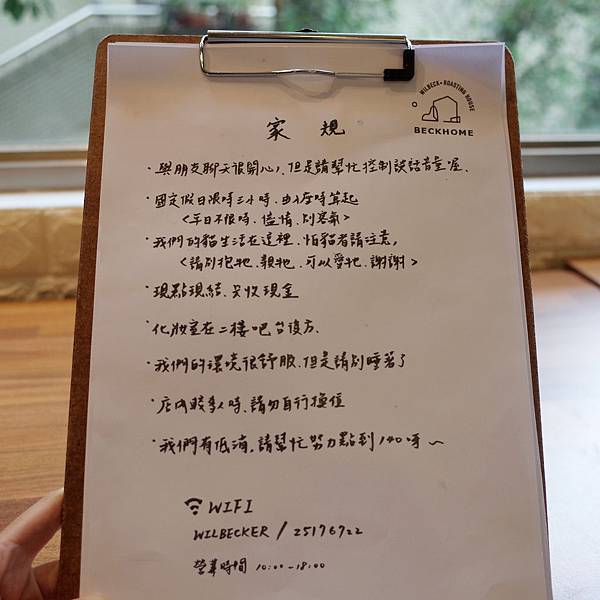 WILBECK • ROASTING HOUSE
BECKHOME
家 規
·與朋友聊天很開心,但是請幫忙控制談話音量喔、
·國定假日限時三小時、由入座時算起
<平日不限時、儘情、別客氣>
·我們的貓生活在這裡、怕貓者請注意,
<請別抱牠、親牠、可以愛牠、謝謝>
·現點現結、只收現金
·化妝室在二樓吧台後方、
·我們的環境很舒服、但是請別睡著了
·店內較多人時、請勿自行換位
·我們有低消,請幫忙努力點到140呀~
WIFI
WILBECKER / 25176722
營業時間 10:00-18:00